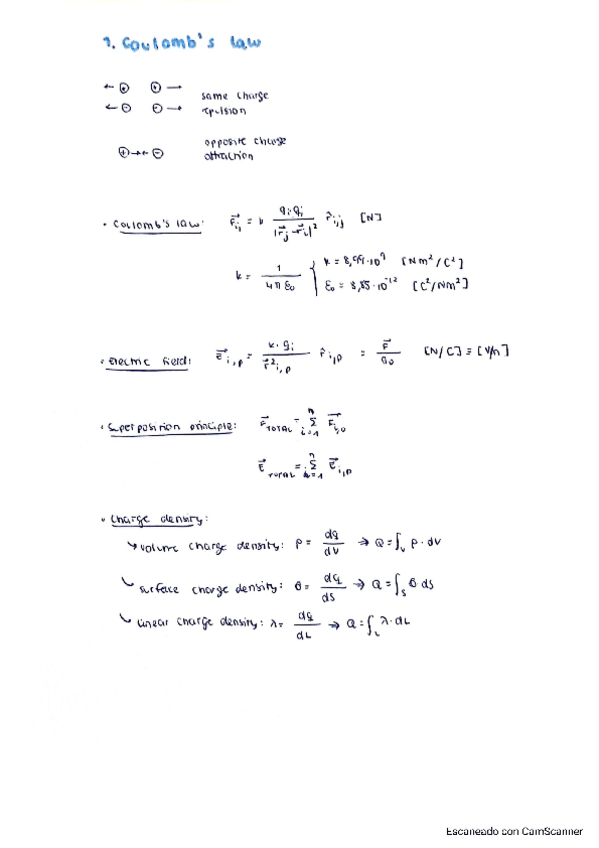 1. Coulomb's law
← ⊕ ⊕ → same charge
← ⊖ ⊖ → repulsion
⊕→← ⊖ opposite charge
attraction
• Coulomb's law: F⃗ᵢⱼ = k qᵢ·qⱼ / |r⃗ⱼ - r⃗ᵢ|² r̂ᵢ,ⱼ [N]
k = 1 / 4πε₀ { k = 8,99·10⁹ [Nm²/C²]
ε₀ = 8,85·10⁻¹² [C²/Nm²]
• Electric field: E⃗ᵢ,ₚ = k·qᵢ / r⃗²ᵢ,ₚ r̂ᵢ,ₚ = F⃗ / q₀ [N/C] ≡ [V/m]
• Superposition principle: F⃗ TOTAL = Σⁿᵢ₌₁ F⃗ᵢ,₀
E⃗ TOTAL = Σⁿᵢ₌₁ E⃗ᵢ,ₚ
• Charge density:
↳ volume charge density: ρ = dq/dV → Q = ∫ᵥ ρ·dV
↳ surface charge density: θ = dq/dS → Q = ∫ₛ θ dS
↳ linear charge density: λ = dq/dL → Q = ∫L λ·dL
Escaneado con CamScanner